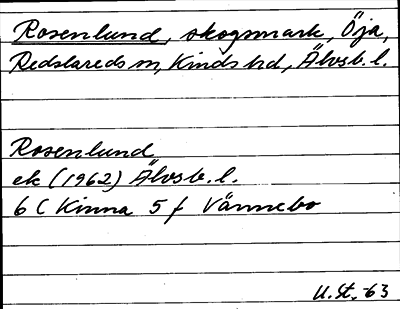 Rosenlund, skogsmark, Öja,
Redslareds sn, Kinds hd, Älvsb. l.
Rosenlund
ek (1962) Älvsb. l.
6 C Kinna 5 f Vännebo
U. St. -63